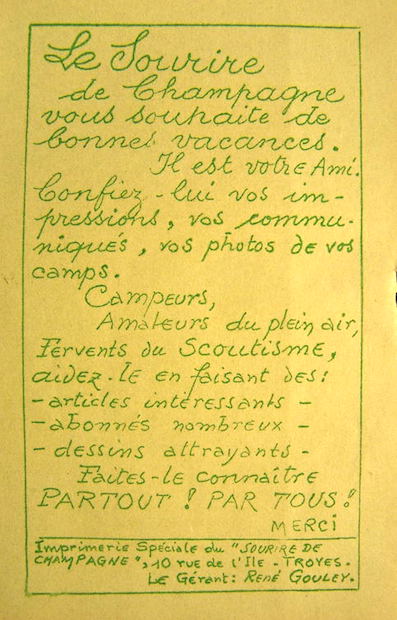 Le Sourire
de Champagne
vous souhaite de
bonnes vacances.
Il est votre Ami.
Confiez-lui vos im-
pressions, vos commu-
niqués, vos photos de vos
camps.
Campeurs,
Amateurs du plein air,
Fervents du Scoutisme,
aidez-le en faisant des:
- articles intéressants -
- abonnés nombreux -
- dessins attrayants -
Faites-le connaître
PARTOUT ! PAR TOUS !
MERCI
Imprimerie Spéciale du "SOURIRE DE
CHAMPAGNE", 10 rue de l'Ile - TROYES.
Le Gérant: René GOULEY.